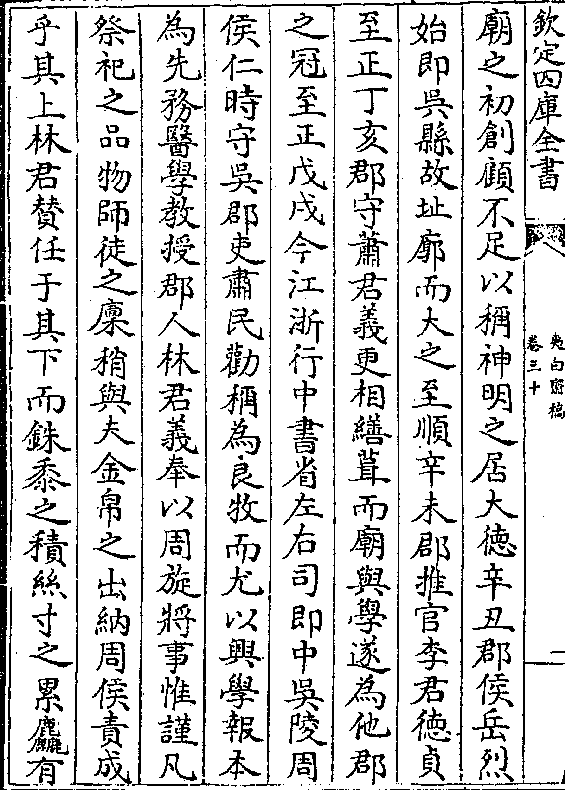 欽定四庫全書
夷白齋稿
卷三十
一
廟之初創顧不足以稱神明之居大徳辛丑郡侯岳烈
始即吳縣故址廓而大之至順辛未郡推官李君徳貞
至正丁亥郡守蕭君義更相繕葺而廟與學遂為他郡
之冠至正戊戌今江浙行中書省左右司即中吳陵周
侯仁時守吳郡吏肅民勸稱為良牧而尤以興學報本
為先務醫學教授郡人林君義奉以周旋將事惟謹凡
祭祀之品物師徒之廩稍與夫金帛之出納周侯責成
乎其上林君賛任于其下而銖黍之積絲寸之累麤有